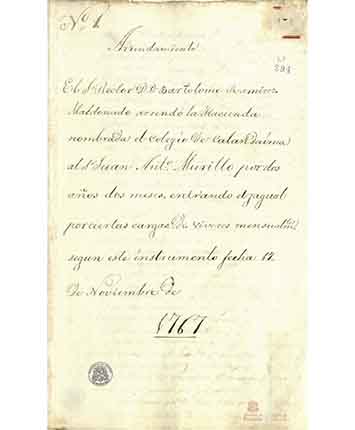 Nº 1.
Arrendamiento
El Sr. Rector D. D. Bartolome Ramirez
Maldonado arrendó la Hacienda
nombrada el Colegio de Calandaima
al Sr. Juan Antº. Murillo por dos
años dos meses, entrando el
por ciertas cargas de viveres
segun este instrumento fecha 12
de Noviembre de
1767